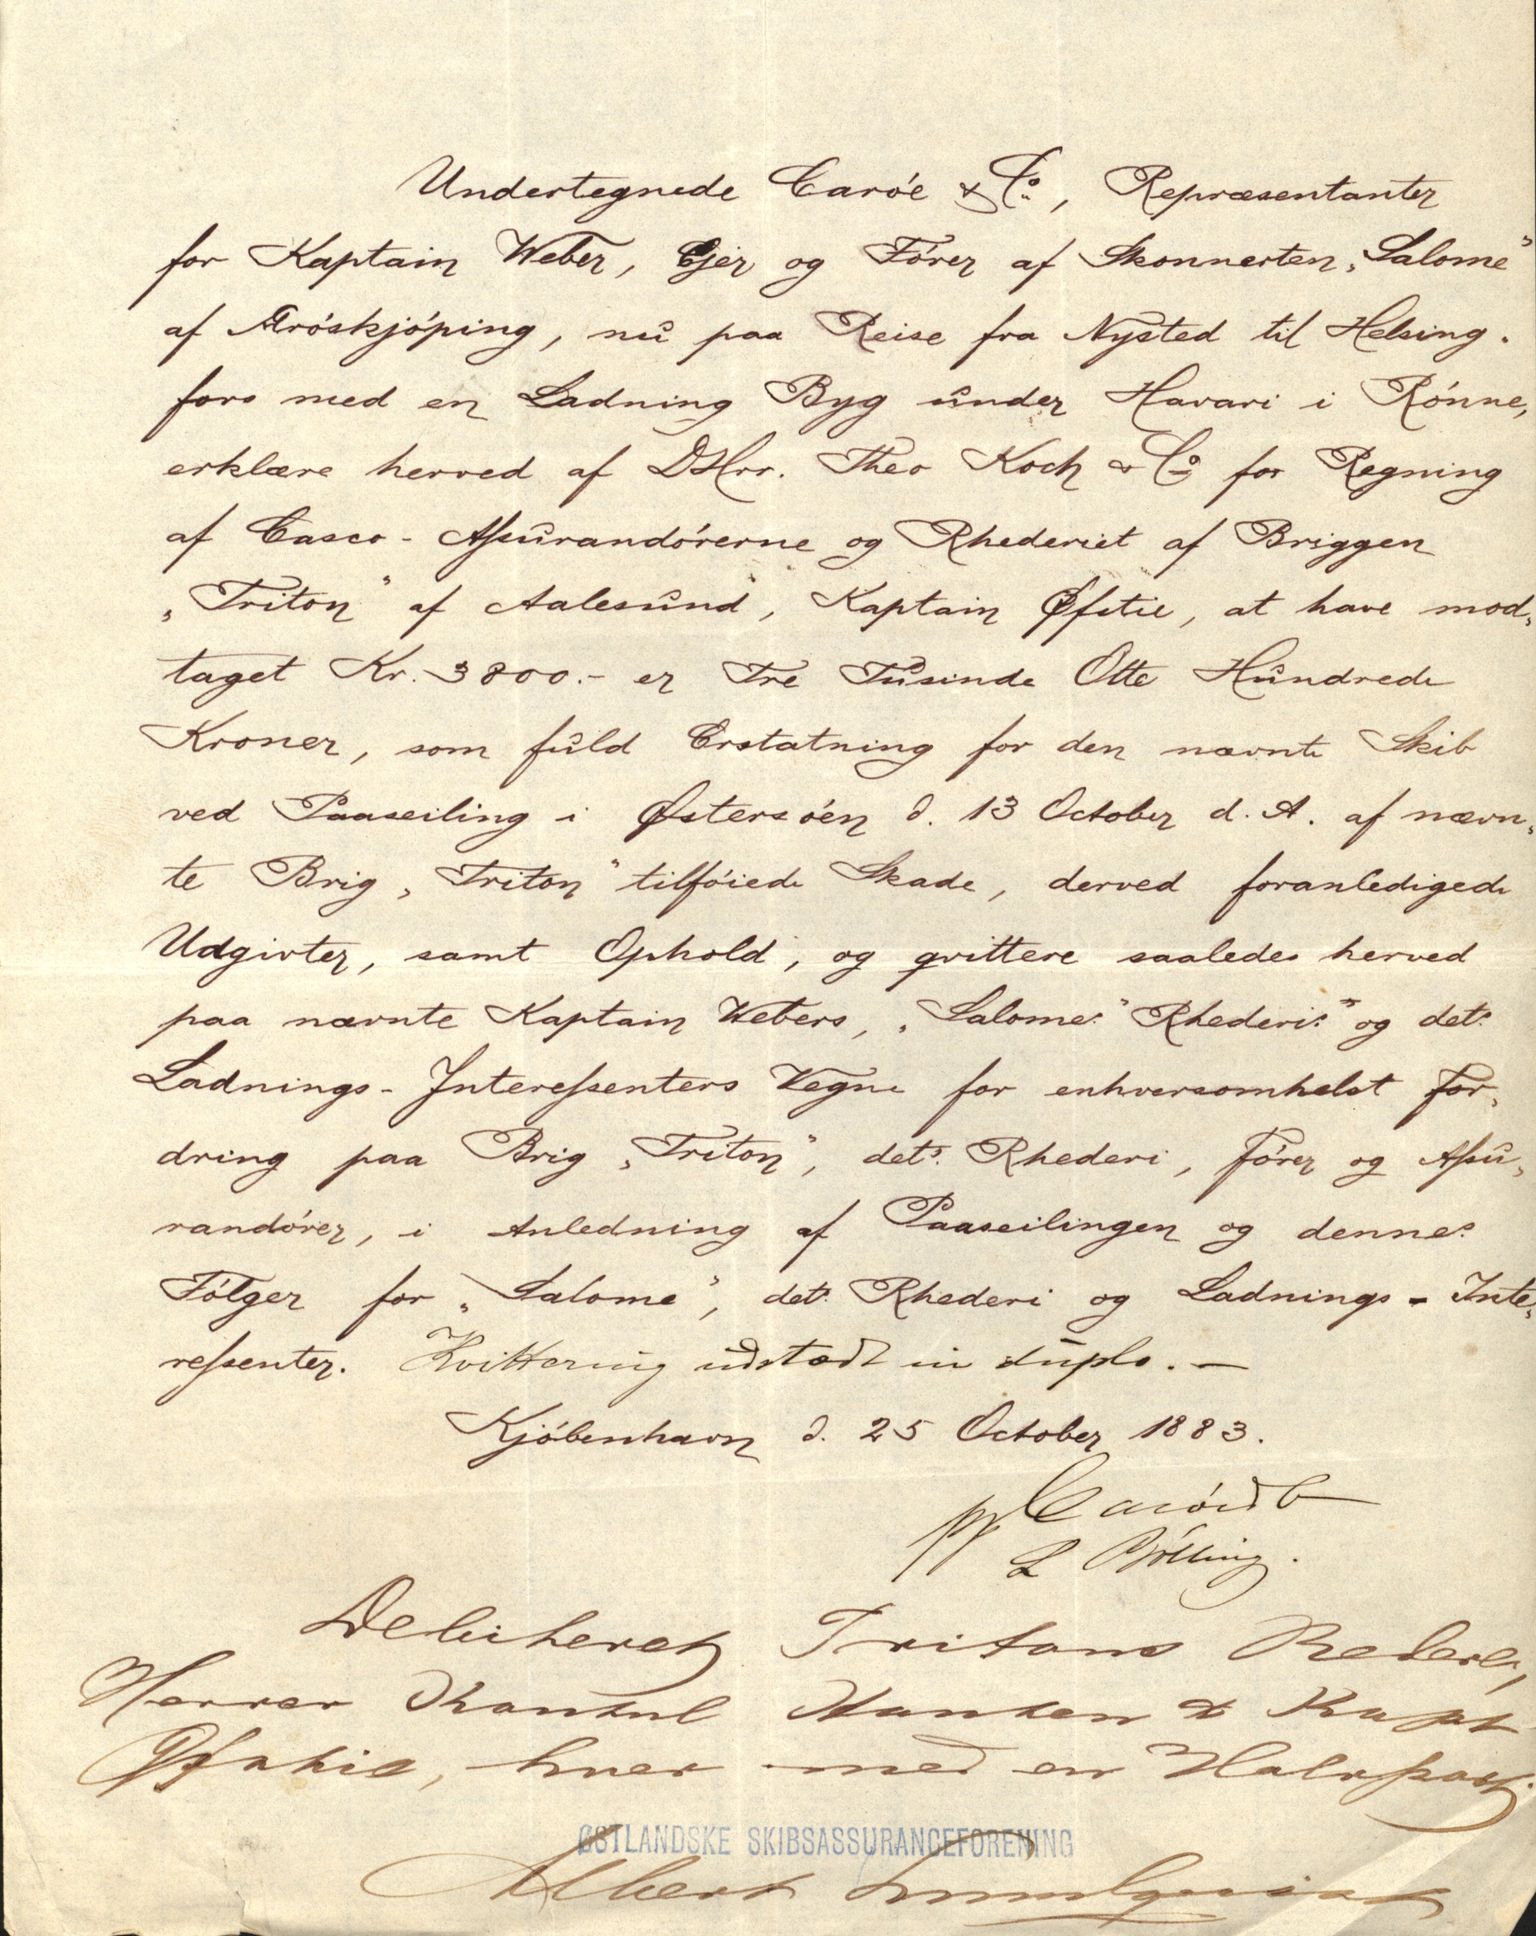 Undertegnede Caróe & Co., Repræsentanter
for Kaptain Weber, Ejer og Fórer af Skonnerten „Salome”
af Æróskjóping, nu paa Reise fra Nysted til Helsing-
fors med en Ladning Byg under Havari i Rónne,
erklære herved af DHrr. Theo Koch & Co for Regning
af Casco-Assurandórerne og Rhederiet af Briggen
„Triton” af Aalesund, Kaptain Øfstie, at have mod-
taget Kr. 3800.- er Tre Tusinde Otte Hundrede
Kroner, som fuld Erstatning for den nævnte Skib
ved Paaseiling i Østersóen d. 13 October d. A. af nævn-
te Brig „Triton” tilfóiede Skade, derved foranledigede
Udgivter, samt Ophold, og qvittere saaledes herved
paa nævnte Kaptain Webers, „Salomes” Rhederis” og dets
Ladnings-Interessenters Vegne for enhversomhelst For-
dring paa Brig „Triton”, dets Rhederi, Fórer og Assu-
randórer, i Anledning af Paaseilingen og dennes
Fólger for „Salome”, dets Rhederi og Ladnings-Inte-
ressenter. Kvittering udstædt in duplo. —
Kjóbenhavn d. 25 October 1883.
pp Caróe & Co
L Bólling.
Debiteret Tritons Rederi,
Herrer Konsul Hansen & Kapt
Øfstie, hver med en Halvpart.
ØSTLANDSKE SKIBSASSURANCEFORENING
Albert